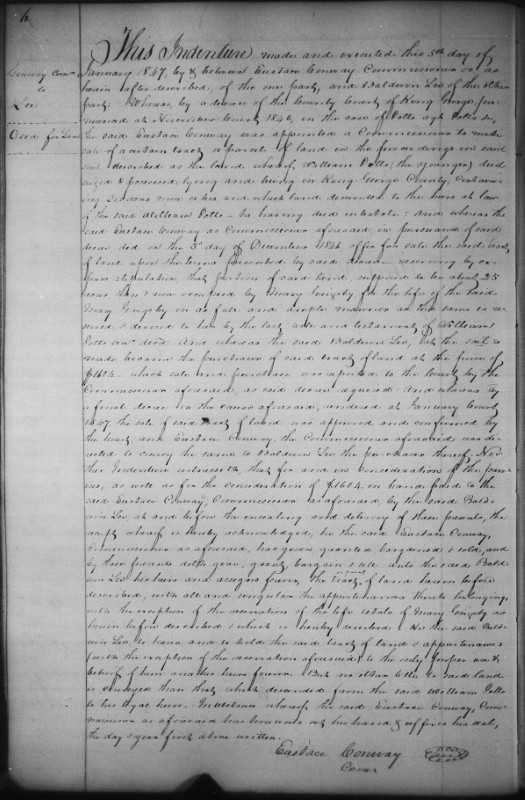 6
Conway Comr
to
Lee
Deed for Land
This Indenture made and executed this 5th day of
January 1847, by & between Eustace Conway Commissioner &c as
herein after described, of the one part, and Baldwin Lee of the other
part: Whereas, by a decree of the County Court of King George, 
at November Court 1846, in the case of Potts agt Potts &c,
the said Eustace Conway was appointed a Commissioner to make
sale of a certain tract or parcel of land in the proceedings in said
suit described as the land whereof William Potts (the younger) died
seized & possessed, lying and being in King George County, containing
acres more or less and which land descended to the heirs at law
of the said William Potts — he having died intestate: And whereas the
said Eustace Conway as Commissioner aforesaid, in pursuance of said
decree did on the 3d day of December 1846 offer for sale the said tract
of land upon the terms prescribed by said decree reserving by ex-
press stipulation, that portion of said land, supposed to be about 25
acres than & now occupied by Mary Grigsby for the life of the said
Mary Grigsby in as full and ample manner as the same is re-
served & devised to her by the last will and testament of William
Potts decd. And whereas the said Baldwin Lee, at the sale so
made became the purchaser of said tract of land at the price of
$1604 which sale and purchase was reported to the Court by the
Commissioner aforesaid, as said decree required And whereas by
a final decree in the cause aforesaid, rendered at January Court
1847 the sale of said tract of land was approved and confirmed by
the Court, and Eustace Conway, the Commissioner aforesaid was de-
creed to convey the same to Baldwin Lee the purchaser thereof. Now
this Indenture witnesseth, that for and in consideration of the premi-
ses, as well as for the consideration of $1604, in hand paid to the
said Eustace Conway Commissioner as aforesaid, by the said Bald-
win Lee, at and before the ensealing and delivery of these presents, the
receipt whereof is hereby acknowledged, he the said Eustace Conway,
Commissioner as aforesaid, has given granted bargained & sold, and
by these presents doth give, grant, bargain & sell unto the said Bald-
win Lee his heirs and assigns forever, the tract of land herein before
described, with all and singular the appurtenances thereto belonging,
with the exception of the reservation of the life estate of Mary Grigsby as
herein before described & which is hereby reserved: To the said Bald-
win Lee, to have and to hold the said tract of land & appurtenances
(with the exception of the reservation aforesaid) to the only proper use &
behoof of him and his heirs forever. But no other title to said land
is conveyed than that which descended from the said William Potts
to his legal heirs. In witness whereof the said Eustace Conway, Com-
missioner as aforesaid has hereunto set his hand & affixed his seal,
the day & year first above written.
Eustace Conway
Comr